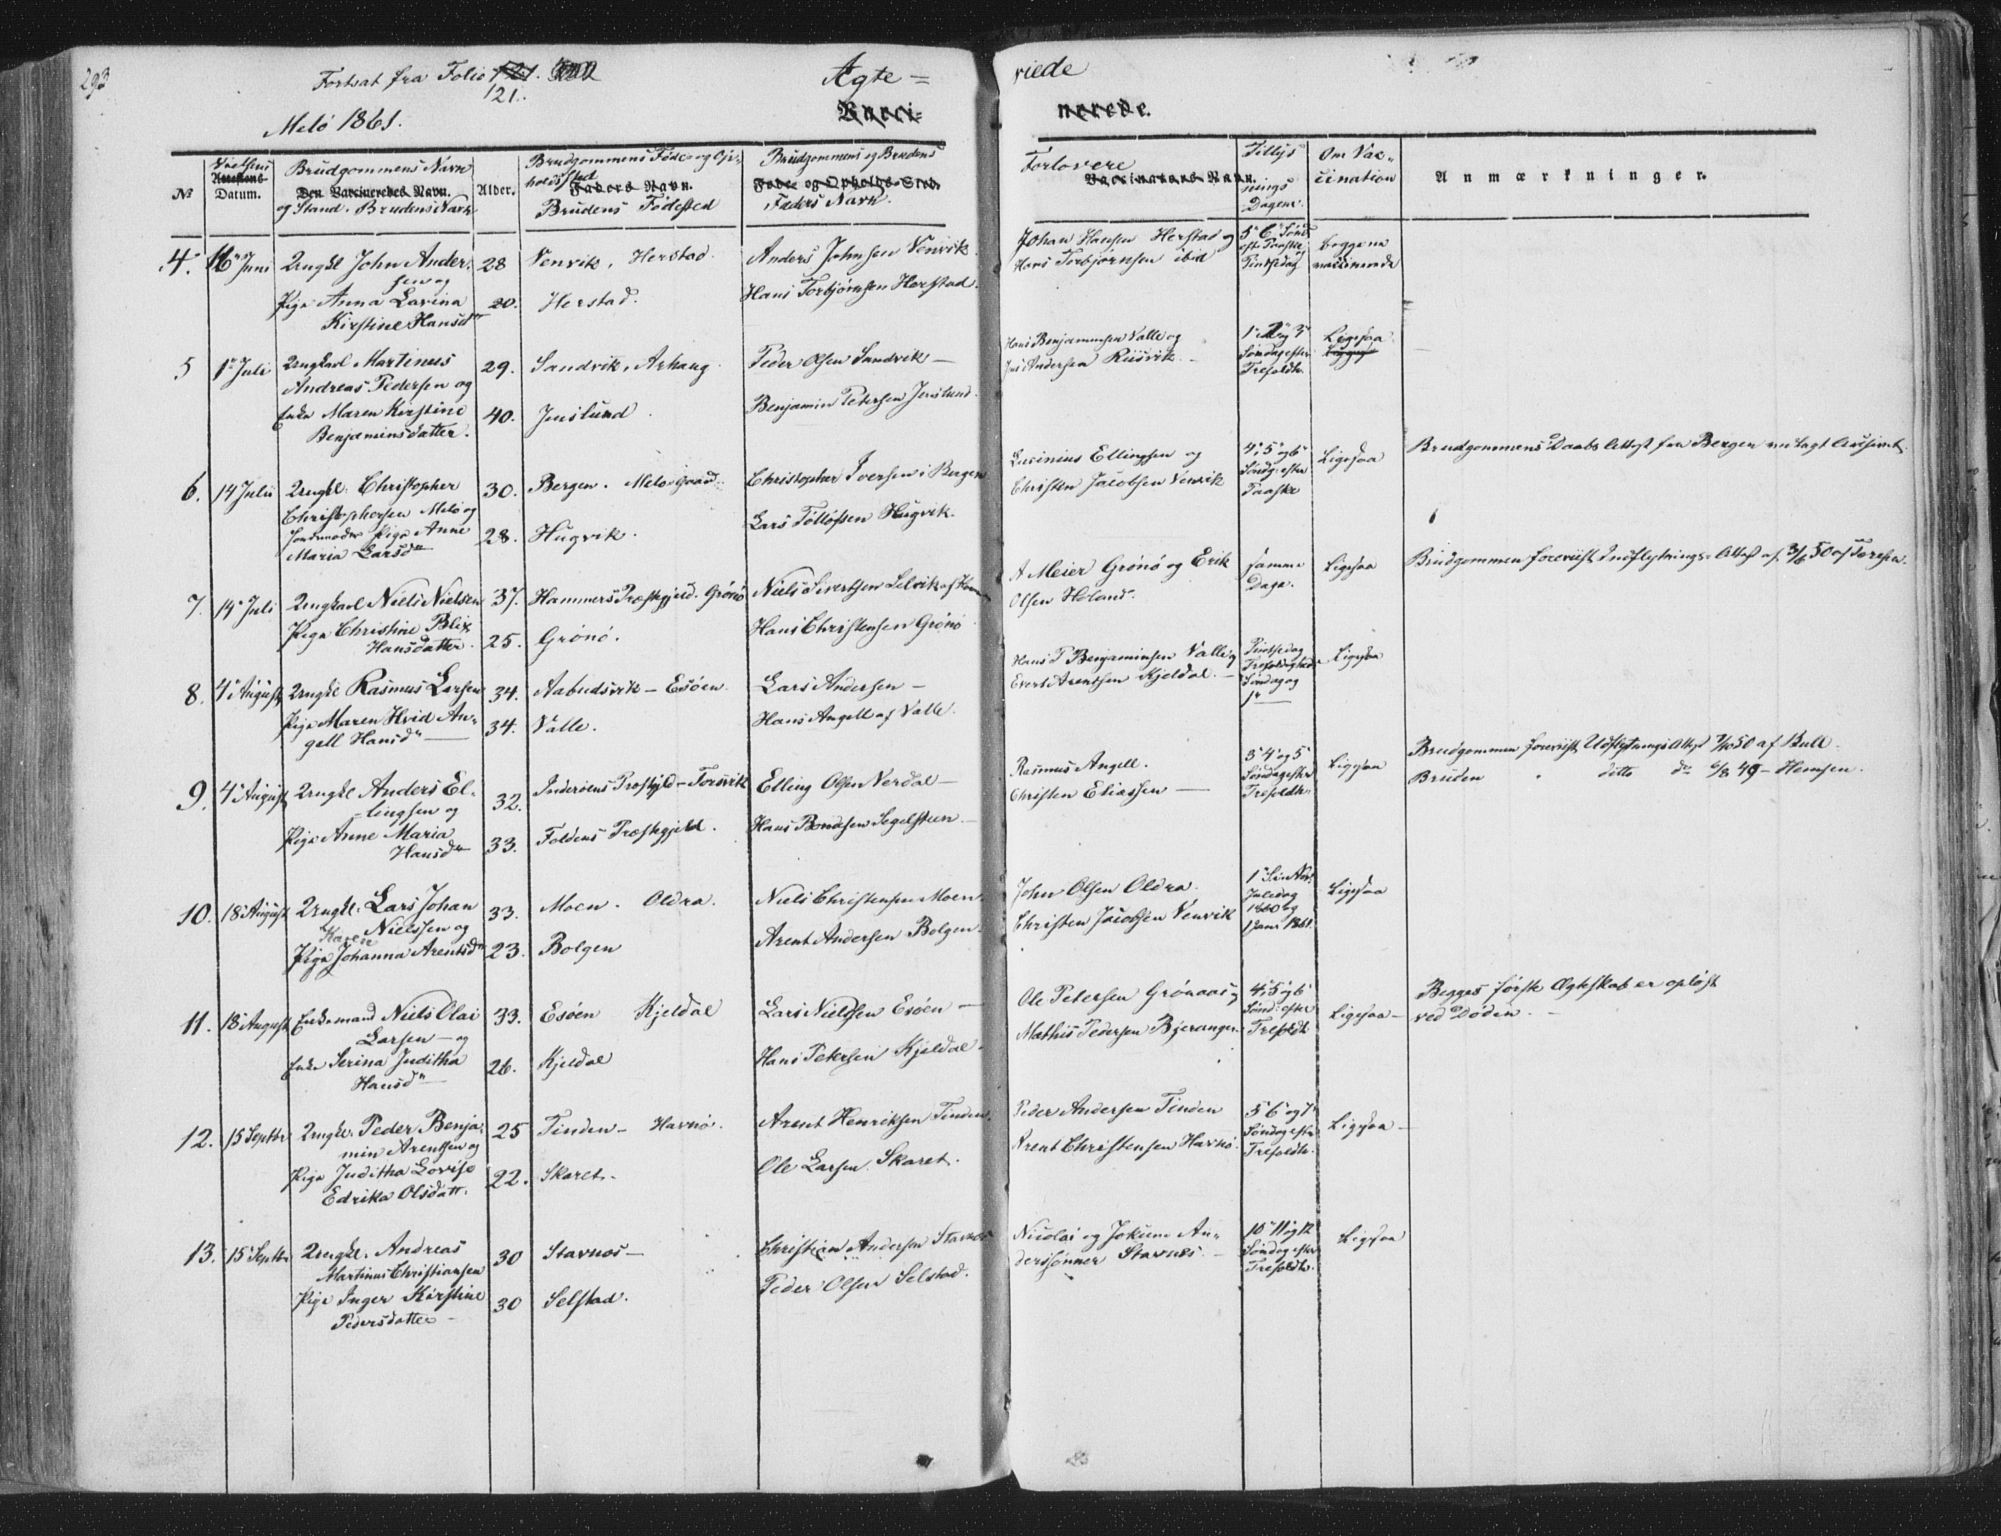 293
Fortsat fra Folio 121.
121.
Ægte = viede
Melö 1861.
Vacci= nerede.
Vielsens Brudgommens Navn Brudgommens Føde- og Op= Brudgommens og Brudens Forlovere Tillys Om Vac=
No Attestens Datum. Den Vaccineredes Navn. Alder. holdssted Faders Navn. Føde- og Opholds-Sted. Vaccinateurs Navn. nings cination Anmærkninger.
og Stand. Brudens Navn Brudens Fødested Faders Navn. Dagene.
4. 16 Juni Ungkl John Ander= 28 Venvik, Herstad. Anders Johnsen Venvik Johan Hansen Herstad og 5. 6. Sønd. begge
sen og Hans Torbjørnsen ibid eft. Paaske vaccinerede
Pige Anna Lavina 20. Herstad. Hans Torbjørnsen Herstad. Pintsedag
Kirstine Hansdr
5 1. Juli Ungkarl Martinus 29. Sandvik, Arhaug Peder Olsen Sandvik — Hans Benjaminsen Valle og 1. 2 og 3 Ligesaa
Andreas Pedersen og Andersen Riisvik. Søndag efter
Enke Maren Kirstine 40. Jenslund Benjamin Petersen Jenslund. Trefoldh.
Benjaminsdatter.
6. 14 Juli Ungkl. Christopher 30. Bergen. Melö-gaard Christopher Iversen i Bergen Lucinius Ellingsen og 4. 5 og 6 Ligesaa Brudgommens Daabs Attest fra Bergen
Christophersen Melö og Christen Jacobsen Venvik Søndg. efter
Jordemoder Pige Anne 28. Hugvik. Lars Tollofsen Hugvik. Paaske
Maria Larsdr
7. 14 Juli Ungkarl Niels Nielsen 37. Hammers Præstegjeld. Grönö Niels Sivertsen Lilvik af A Meier Grönö og Erik samme Ligesaa Brudgommen foreviist Indflytnings-Attest af 3/6 50 af
Pige Christine Blix 25. Grönö. Hans Christensen Grönö Olsen Holand. Dage.
Hansdatter.
8. 4. August Ungkl Rasmus Larsen 34. Aabudsvik — Esöen. Lars Andersen — Hans P Benjaminsen Valle og Pintsedag Ligesaa
Pige Maren Hvid An= 34. Valle. Hans Angell af Valle. Evert Arentsen Kjeldal. — Trefoldigheds
gell Hansdr — Søndag og
1. —
9. 4. August Ungkl Anders El= 32. Inderöens Præstgjld — Torsvik Elling Olsen Verdal — Rasmus Angell. 3. 4 og 5 Ligesaa Brudgommen foreviist Udflytnings Attest 50 af Bull.
lingsen og Christen Eliassen — Søndag efter Bruden ditto do 6/8 49 — Hemsen.
Pige Anne Maria 33. Foldens Præstegjeld. Hans Bendsen Segelsteen — Trefoldh.
Hansdr
10. 18 August Ungkl. Lars Johan 33. Moen. Oldra. Niels Christensen Moen. John Olsen Oldra. 1. Ligesaa
Nielssen og Christen Jacobsen Venvik Juledag
Karen 1860 og
Pige Johanna Arentsdr 23. Bolgen Arent Andersen Bolgen. 1 Janr 1861.
11. 18 August Enkemand Niels Olai 33. Esöen Kjeldal Lars Nielssen Esöen — Ole Petersen Grönaas og 4. 5 og 6 Ligesaa — Begges første Ægteskab er opløst
Larsen — og Mathis Pedersen Bjeranger. Sønd. efter ved Döden. —
Enke Serina Juditha 26. Kjeldal Hans Petersen Kjeldal. Trefoldh
Hansdr —
12. 15 Septbr Ungkl. Peder Benja= 25 Tinden — Havnö. Arent Henriksen Tinden. Peder Andersen Tinden 5 6 og 7 Ligesaa —
min Arentsen og Arent Christensen Havnö. Søndag efter
Pige Juditha Lovise 22. Skaret. Ole Larsen Skaret. Trefoldh.
Edrika Olsdatt.
13. 15 Septbr Ungkl. Andreas 30 Stavnes — Christian Andersen Stavnes Nicolai og Jokum An= 10 11 og 12 Ligesaa
Martinus Christiansen derssønner Stavnes. — Søndag efter
Pige Inger Kirstine 30 Selstad. Peder Olsen Selstad. Trefoldh.
Pedersdatter —